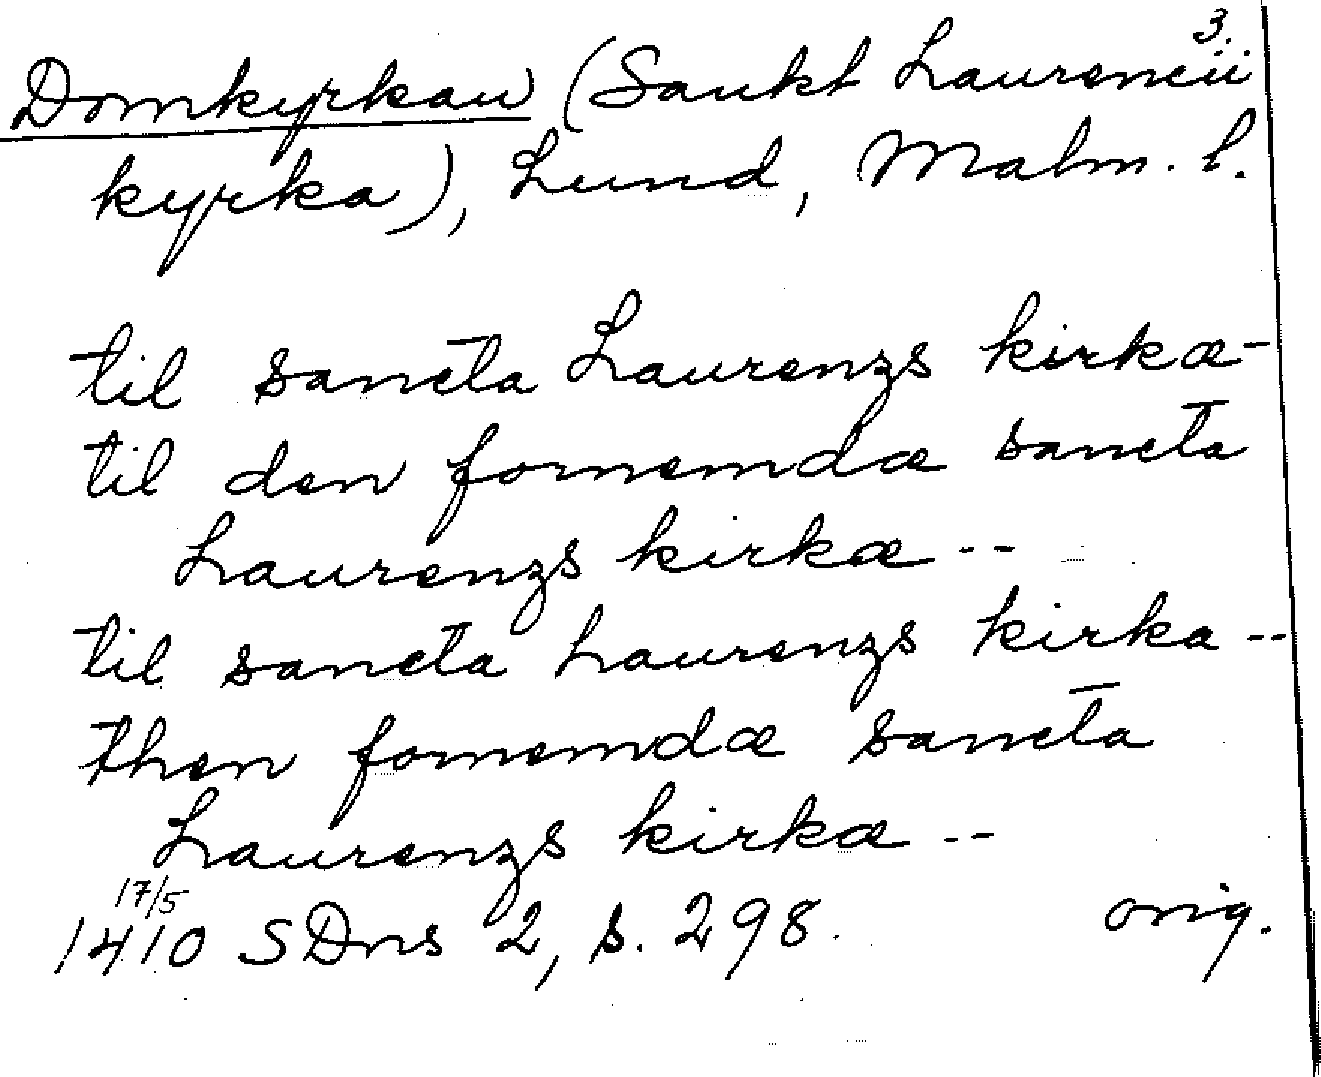 3.
Domkyrkan (Sankt Laurencii
kyrka), Lund, Malm. l.
til sancta Laurenzs kirkæ -
til den fornemdæ sancta
Laurenzs kirkæ --
til sancta Laurenzs kirka --
then fornemdæ sancta
Laurenzs kirkæ --
17/5
1410 SDns 2, s. 298. orig.